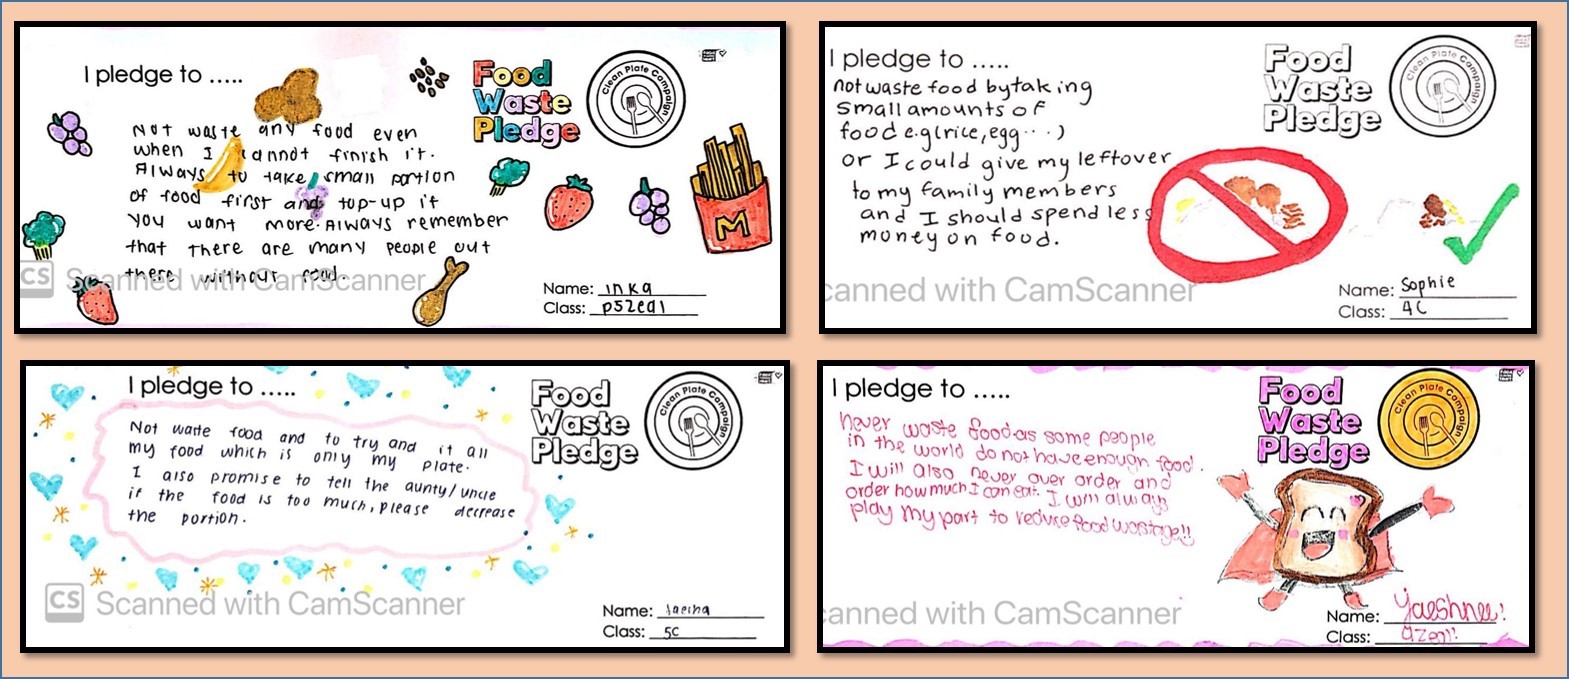 I pledge to .....
Not waste any food even
when I cannot finish it.
Always to take small portion
of food first and top-up if
You want more. Always remember
that there are many people out
there without food.
Food
Waste
Pledge
Clean Plate Campaign
M
Name: Inka
Class: P5Zeal
CS Scanned with CamScanner
I pledge to .....
not waste food by taking
small amounts of
food e.g(rice,egg...)
or I could give my leftover
to my family members
and I should spend less
money on food.
Food
Waste
Pledge
Clean Plate Campaign
Name: Sophie
Class: 4C
canned with CamScanner
I pledge to .....
Not waste food and to try and it all
my food which is only my plate.
I also promise to tell the aunty/uncle
if the food is too much, please decrease
the portion.
Food
Waste
Pledge
Clean Plate Campaign
Name:
Class: 5C
CS Scanned with CamScanner
I pledge to .....
Never waste food as some people
in the world do not have enough food.
I will also never over order and
order how much I can eat. I will always
play my part to reduce food wastage!!
Food
Waste
Pledge
Clean Plate Campaign
Name: Yaeshnee!
Class:
canned with CamScanner